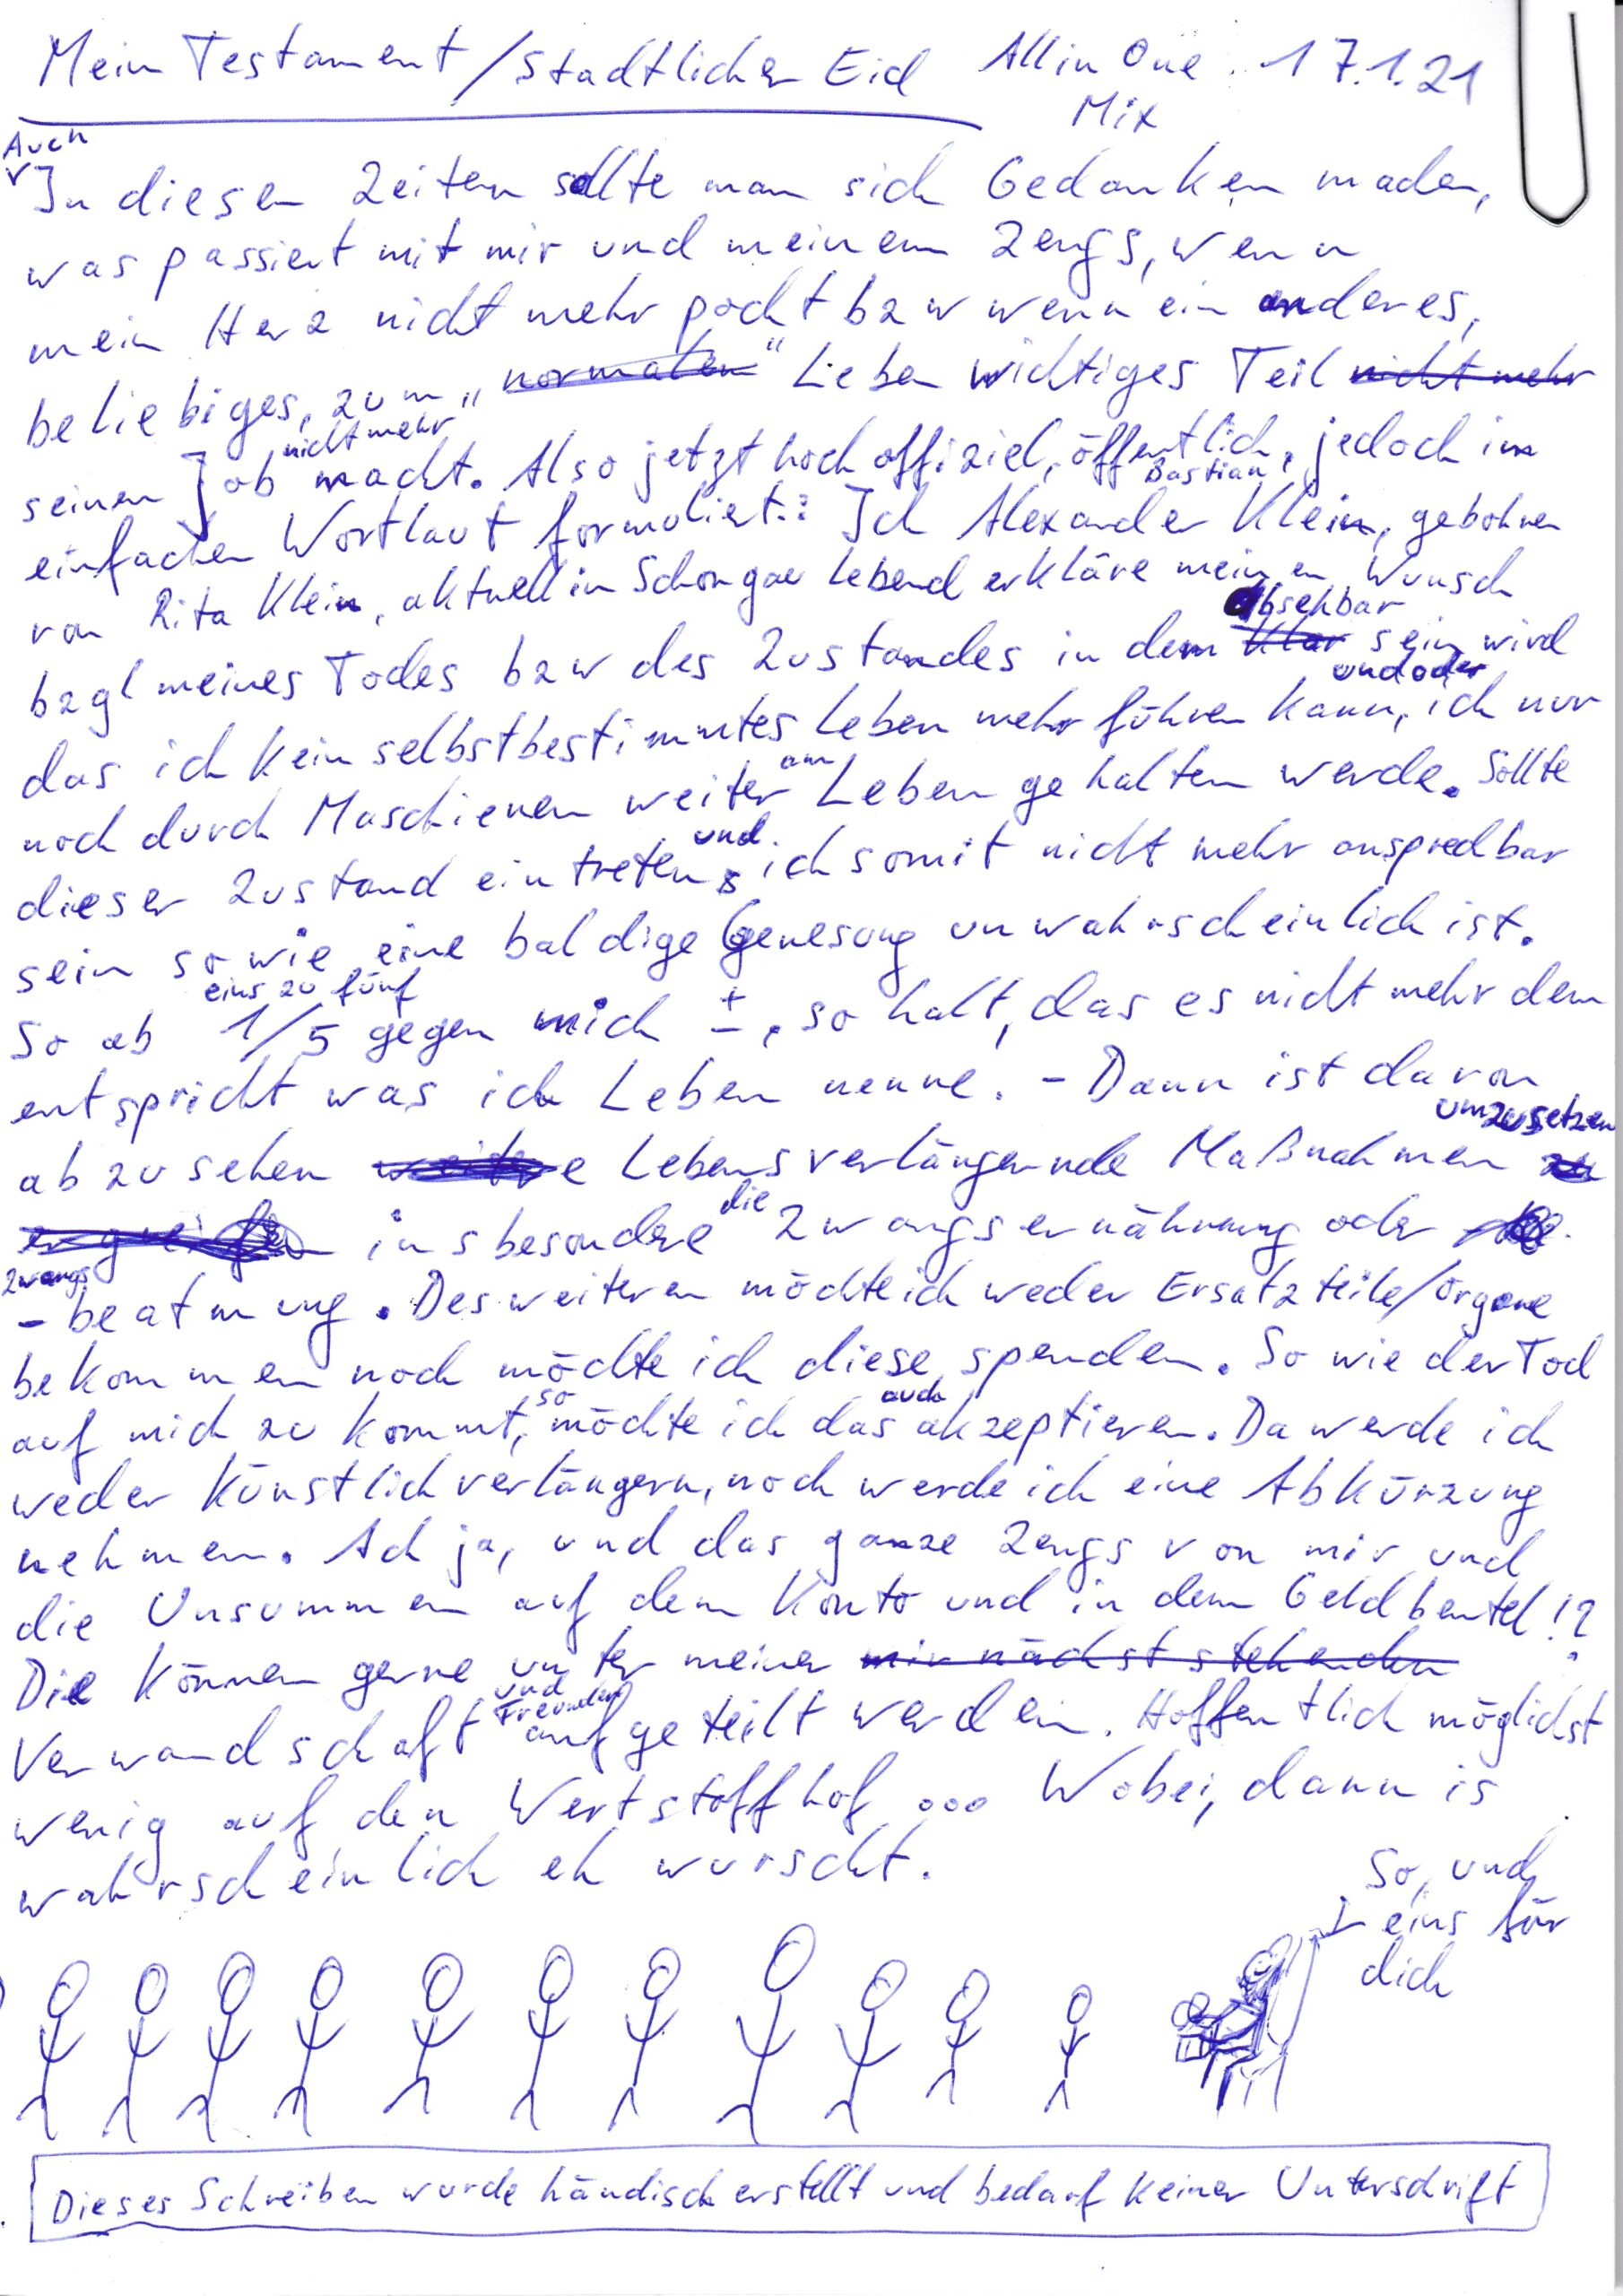 Mein Testament / Stadtlicher Eid All in One 17.1.21
Mix
Auch
In diesen Zeiten sollte man sich Gedanken machen,
was passiert mit mir und meinem Zeugs, wenn
mein Herz nicht mehr pocht bzw wenn ein anderes,
beliebiges, zum „normalen“ Leben wichtiges Teil nicht mehr
nicht mehr
seinen Job macht. Also jetzt hoch offiziel, öffentlich, jedoch im
Bastian
einfachen Wortlaut formuliert: Ich Alexander Klein, gebohren
von Rita Klein, aktuell in Schongau lebend erkläre meinen Wunsch
absehbar
bzgl meines Todes bzw des Zustandes in dem klar sein wird
und oder
das ich kein selbstbestimmtes Leben mehr führen kann, ich nur
am
noch durch Maschienen weiter Leben gehalten werde. Sollte
und
dieser Zustand eintreten, ich somit nicht mehr ansprechbar
sein sowie eine baldige Genesung unwahrscheinlich ist.
eins zu fünf
So ab 1/5 gegen mich ±, so halt, das es nicht mehr dem
entspricht was ich Leben nenne. - Dann ist davon
umzusetzen
abzusehen weitere Lebensverlängernde Maßnahmen zu
die
ergreifen insbesondere Zwangsernährung oder
zwangs
-beatmung. Desweiteren möchte ich weder Ersatzteile/Organe
bekommen noch möchte ich diese spenden. So wie der Tod
so auch
auf mich zu kommt, möchte ich das akzeptieren. Da werde ich
weder künstlich verlängern, noch werde ich eine Abkürzung
nehmen. Ach ja, und das ganze Zeugs von mir und
die Unsummen auf dem Konto und in dem Geldbeutel!?
Die können gerne unter meiner mir nächst stehenden
und Freunden
Verwandschaft aufgeteilt werden. Hoffentlich möglichst
wenig auf den Wertstoffhof ... Wobei, dann is
wahrscheinlich eh wurscht.
So, und
eins für
dich
Dieses Schreiben wurde händisch erstellt und bedarf keiner Unterschrift